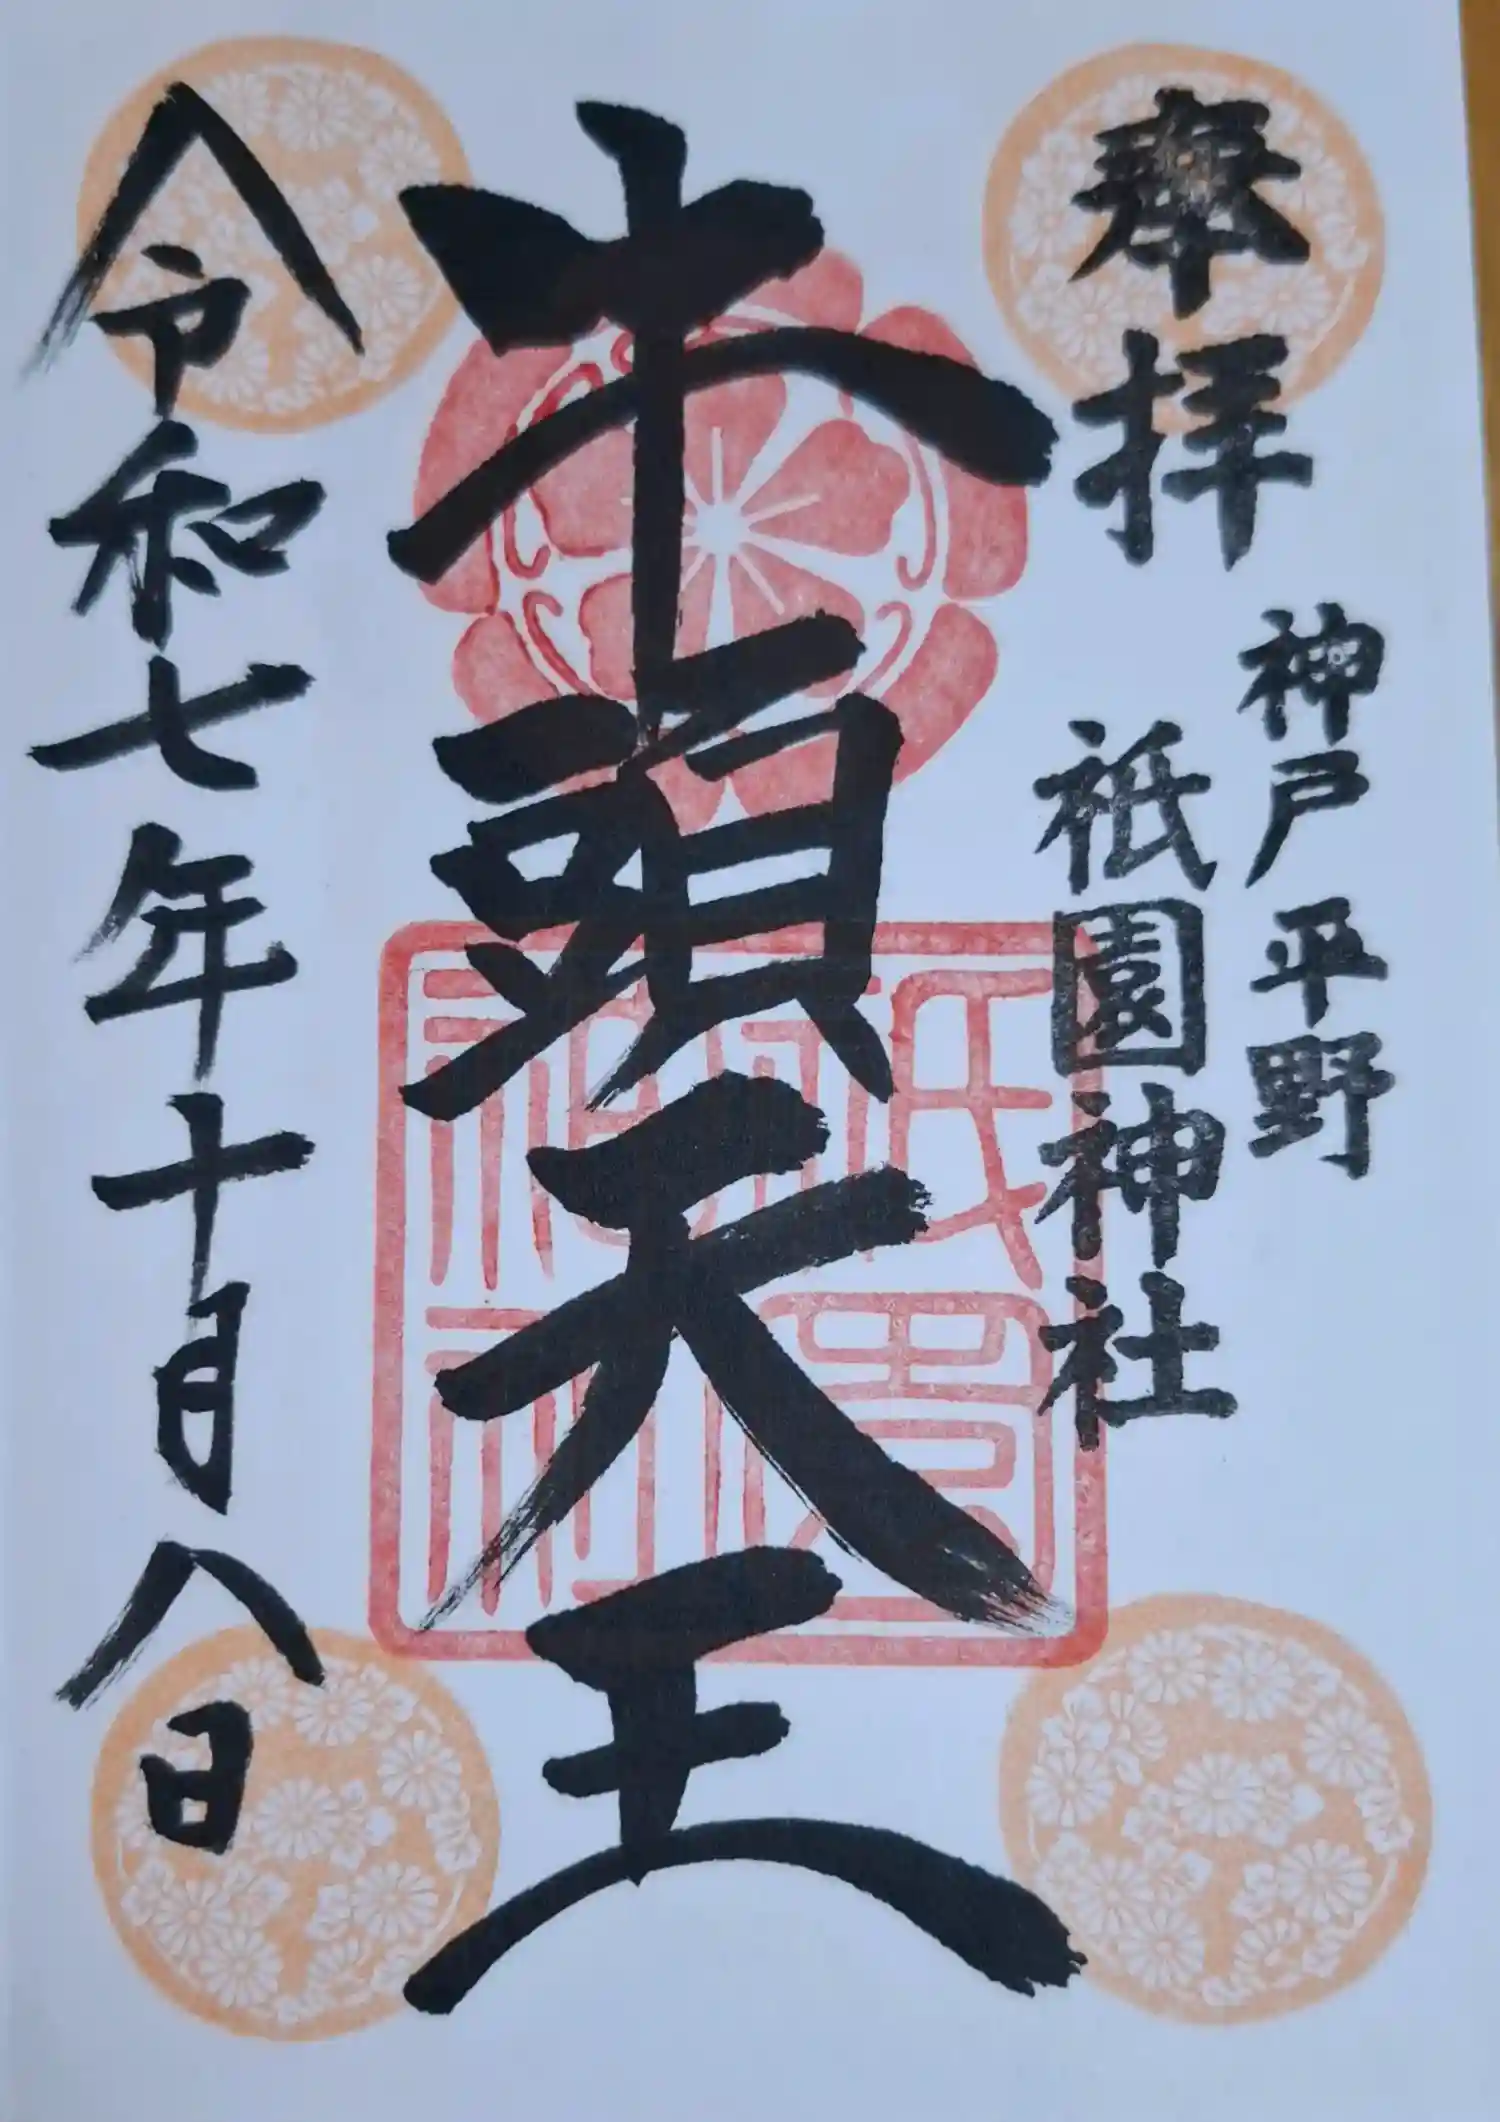 奉拝
神戸平野
祇園神社
牛頭天王
祇園
神社
令和七年十月八日